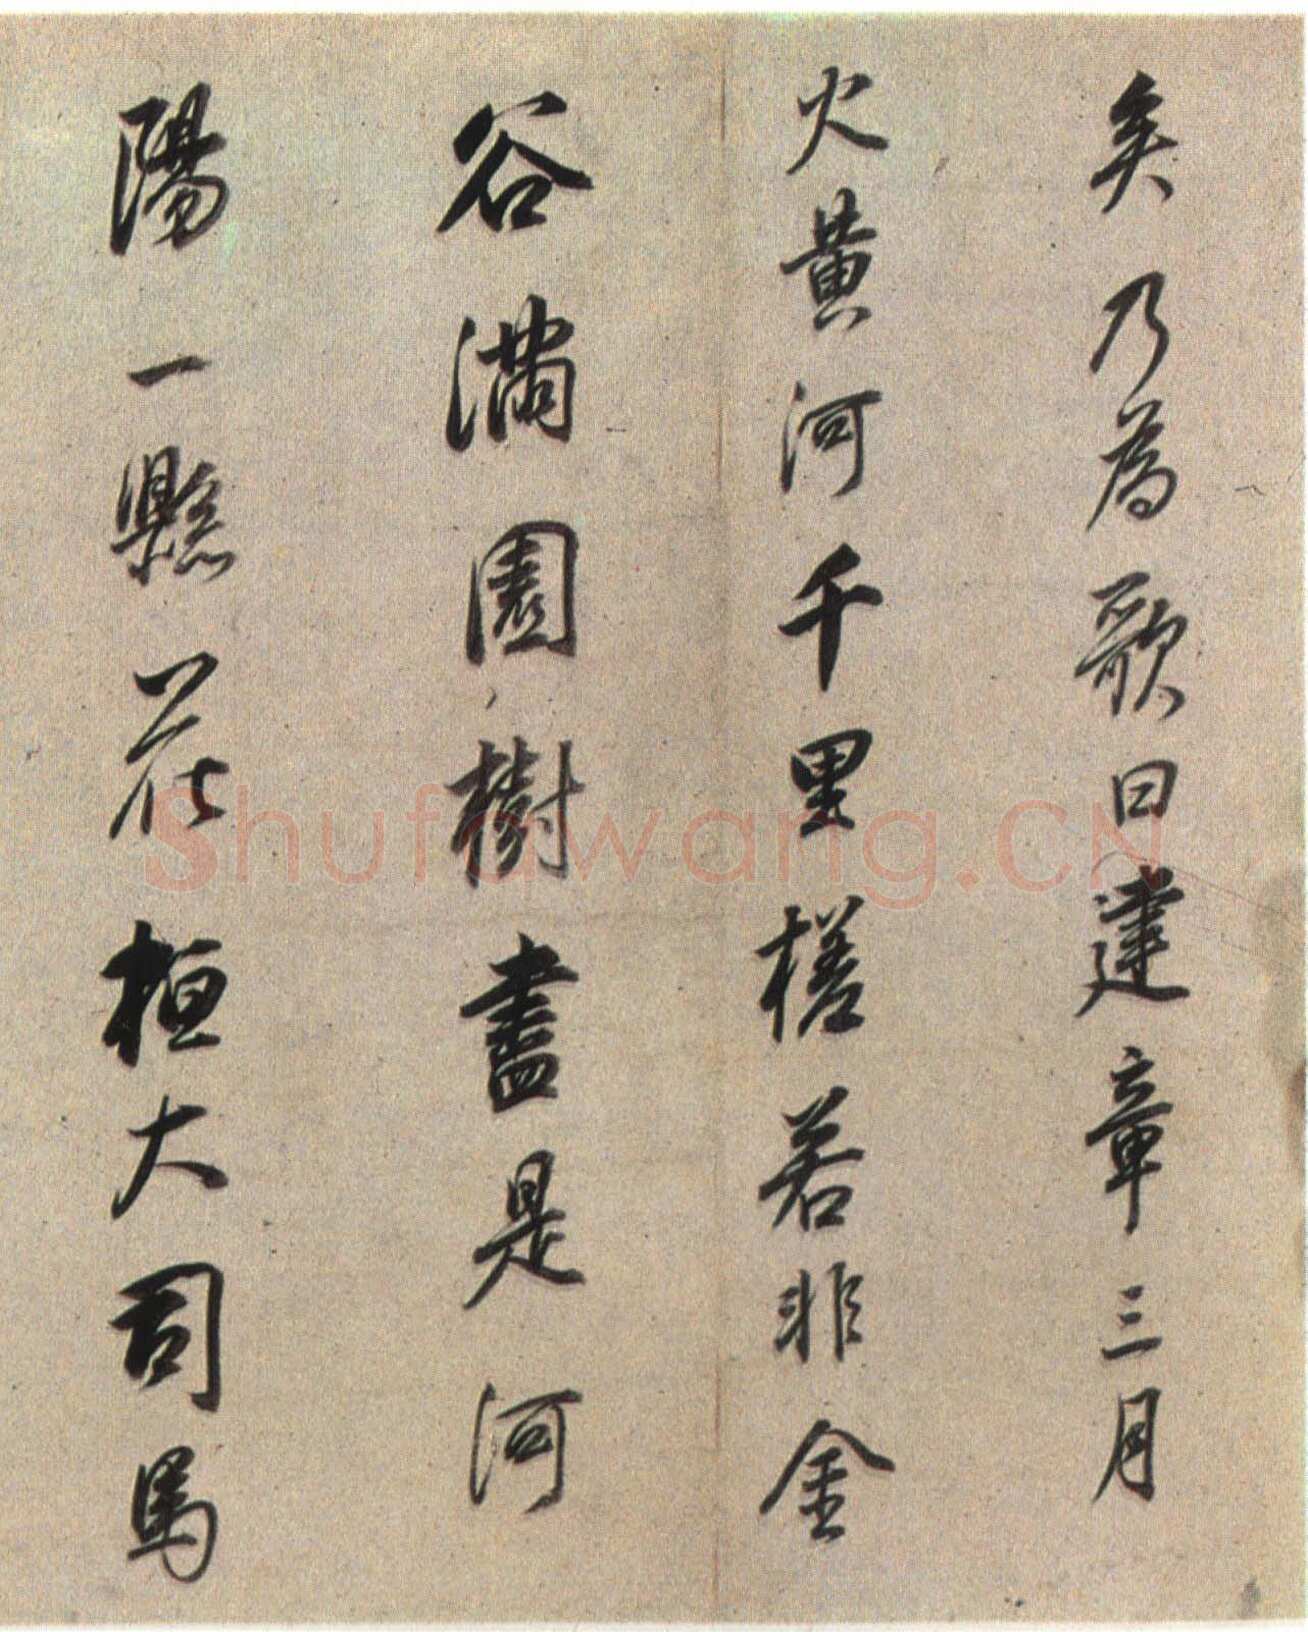 矣乃為歌曰建章三月
火黄河千里槎若非金
谷滿園樹盡是河
陽一縣花桓大司馬
Shufawang.CN